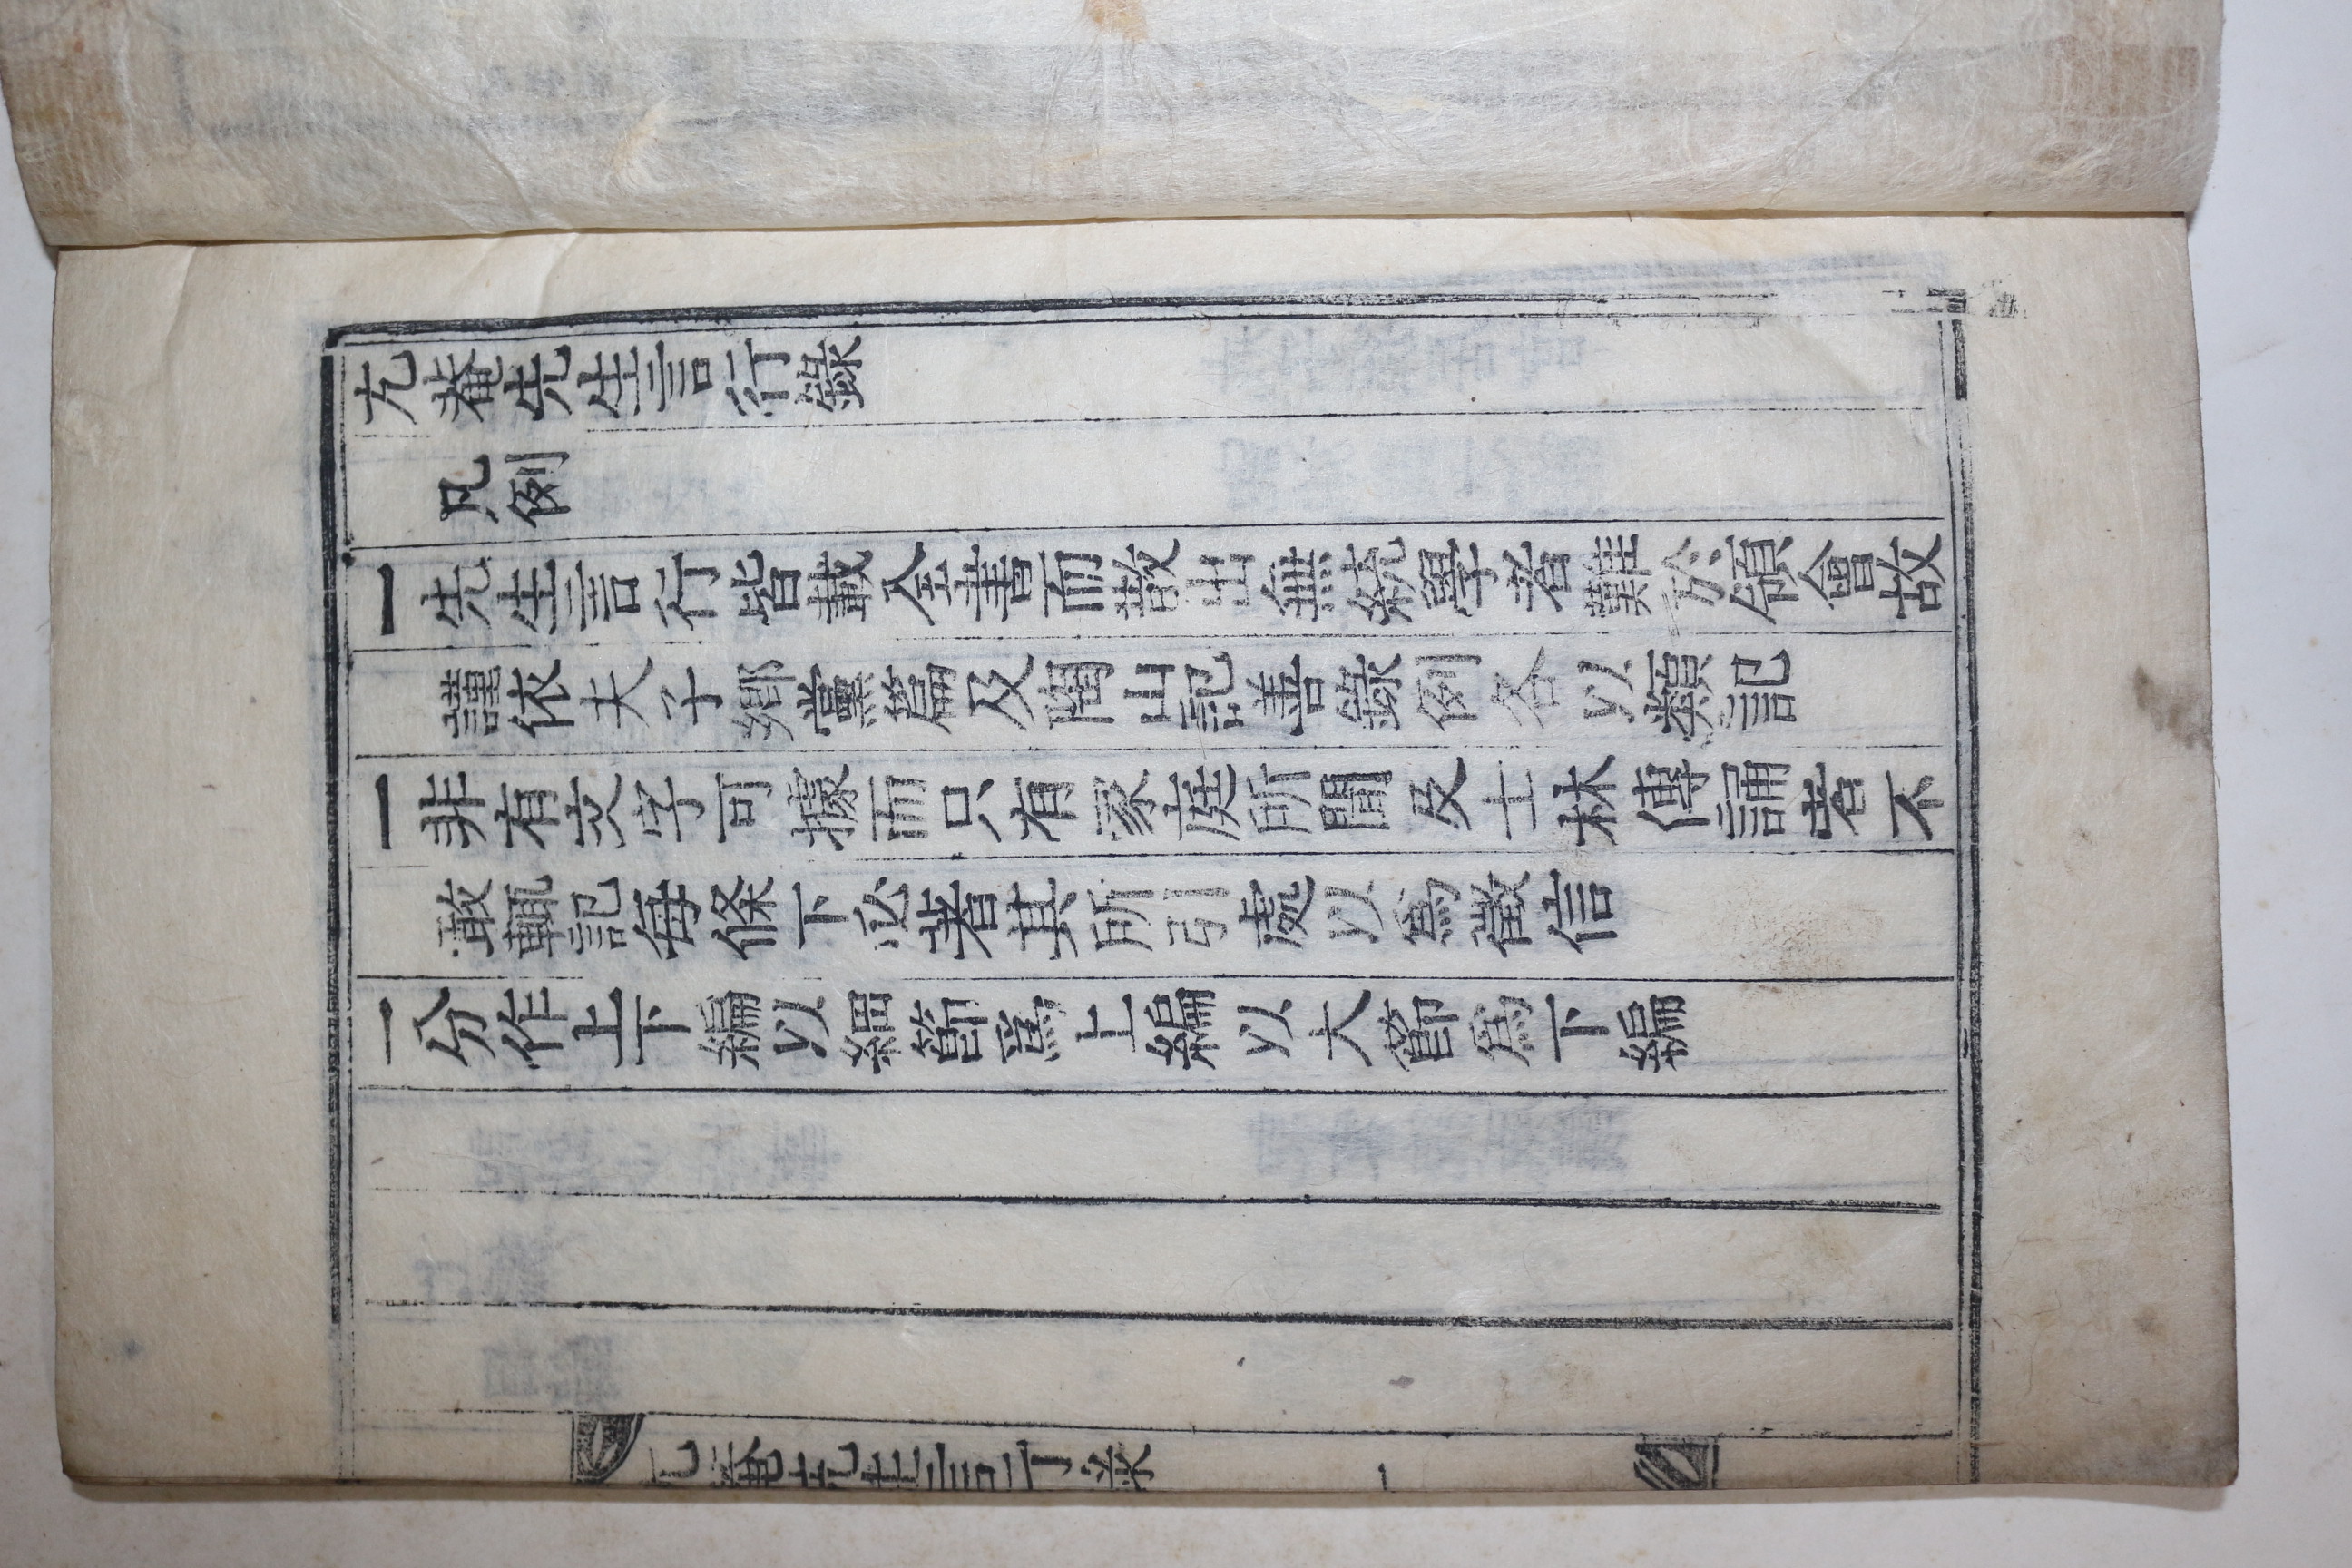 尤菴先生言行錄
凡例
一先生言行皆載全書而散出無統學者難於領會故
謹依夫子鄉黨篇及陶山記善錄例各以類記
一非有文字可據而只有家庭所聞及士林傳誦者不
敢輒記每條下必著其所引處以爲徵信
一分作上下編以細節爲上編以大節爲下編
尤菴先生言行錄
一